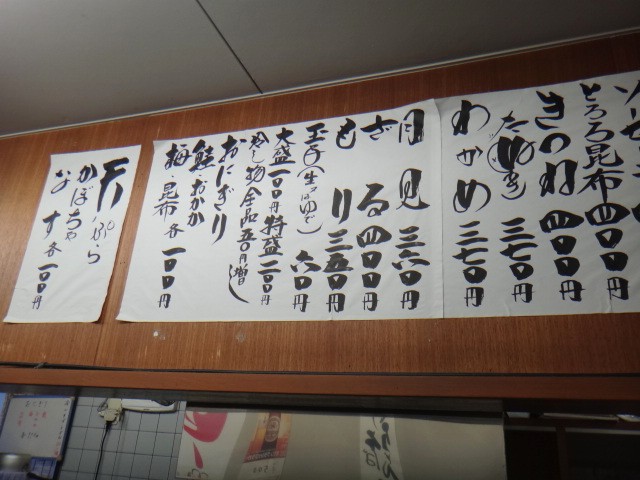 とろろ昆布四〇〇円
きつね四〇〇円
たぬき三七〇円
わかめ三七〇円
月見三六〇円
ざる四〇〇円
もり三五〇円
玉子(生・ゆで)六〇円
大盛一〇〇円特盛二〇〇円
冷し物全品五〇円増し
おにぎり
鮭・おかか
梅・昆布各一〇〇円
天ぷら
かぼちゃ
なす各一〇〇円